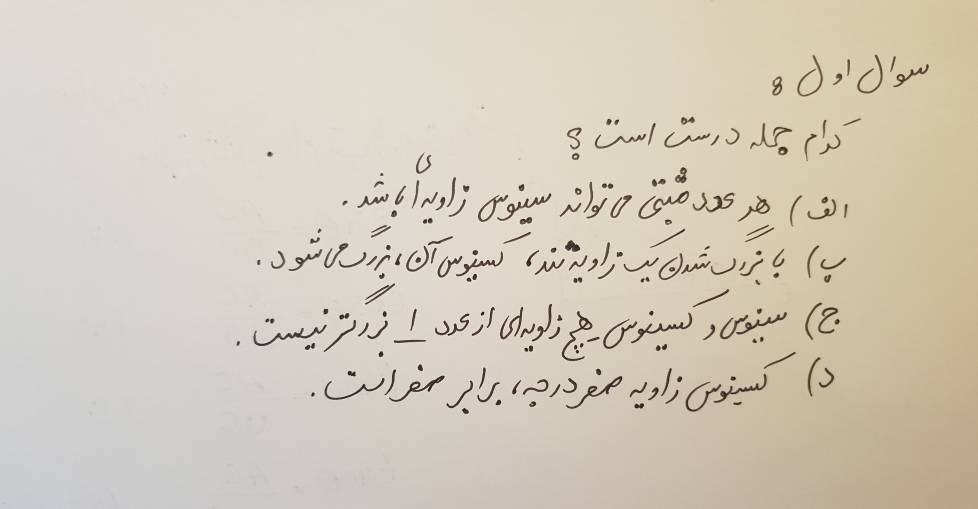 سوال اول :
کدام جمله درست است ؟
الف) هر عدد مثبتی می تواند سینوس زاویه ای باشد .
پ) با بزرگ شدن یک زاویه تند، کسینوس آن، بزرگ می شود .
ج) سینوس و کسینوس هیچ زاویه ای از عدد 1 بزرگتر نیست .
د) کسینوس زاویه صفر درجه، برابر صفر است .